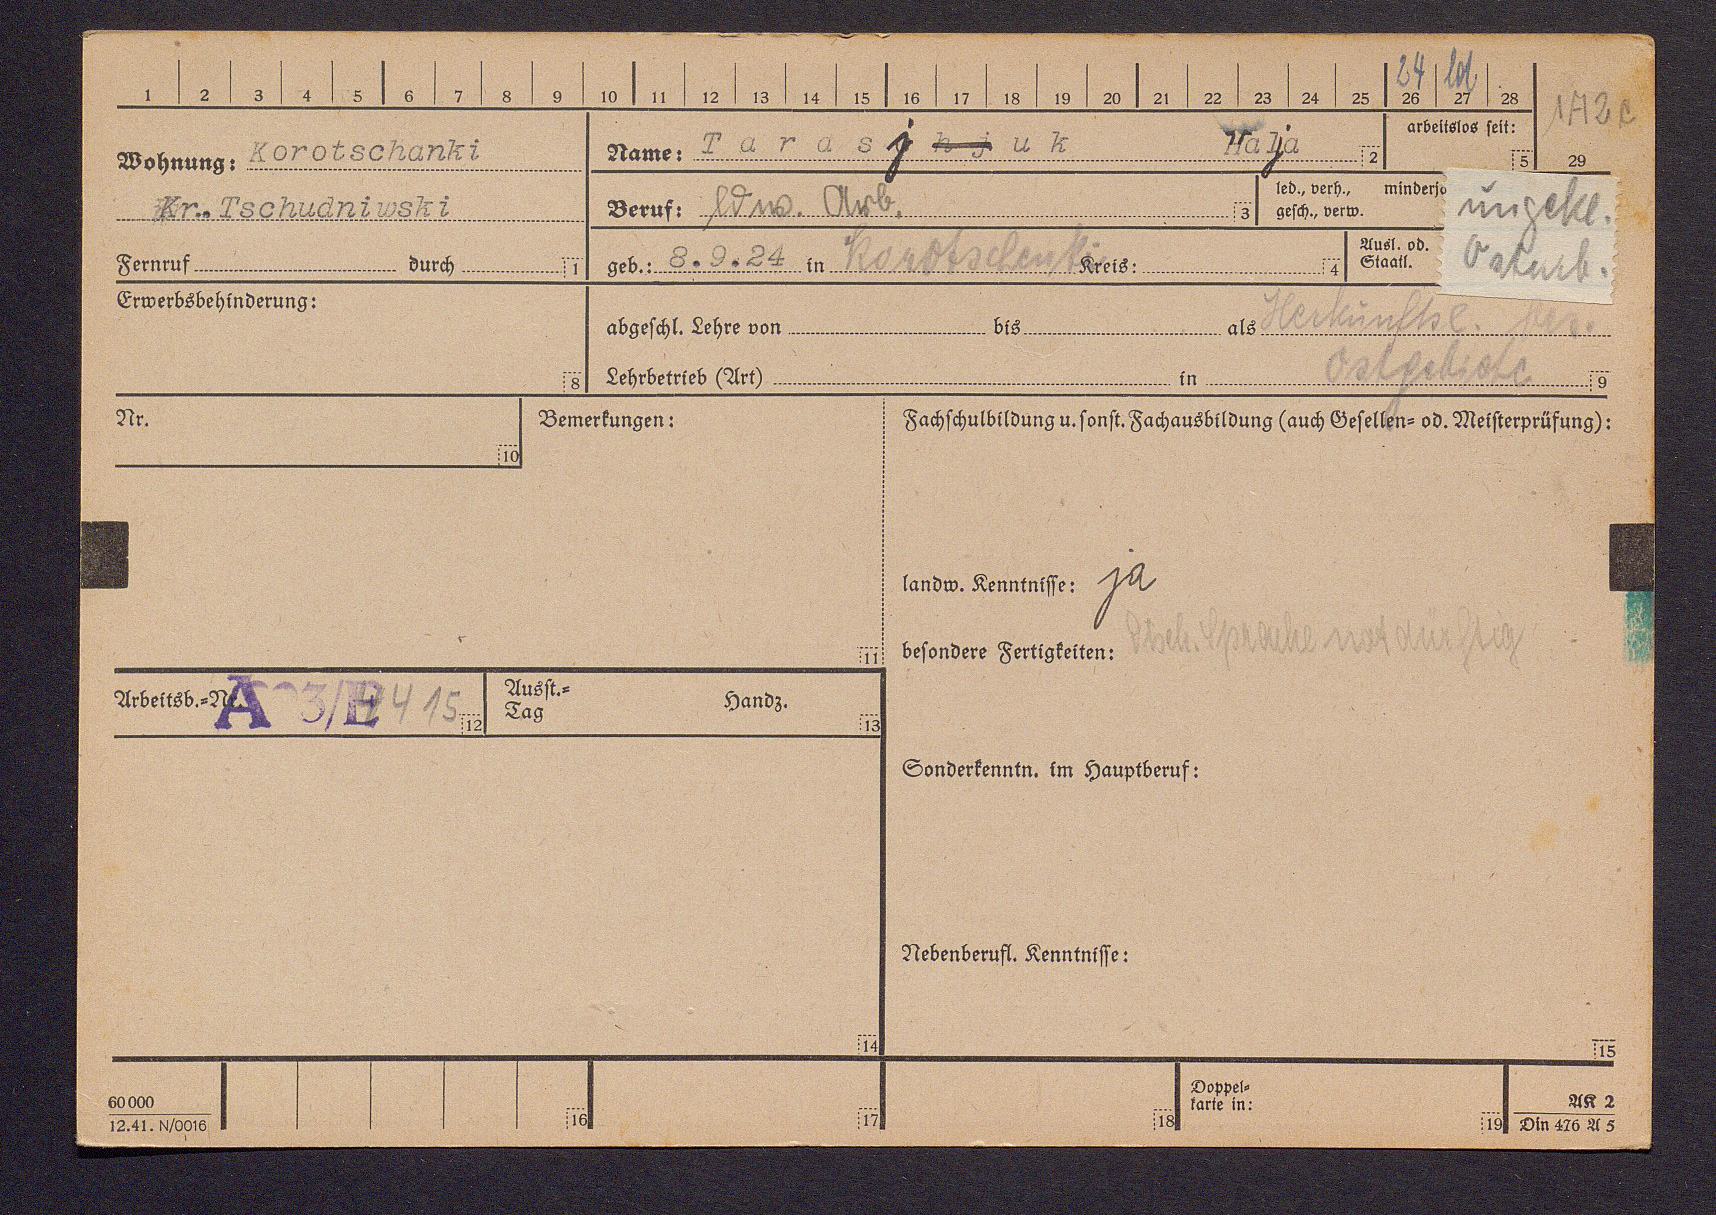 24 led
1 2 3 4 5 6 7 8 9 10 11 12 13 14 15 16 17 18 19 20 21 22 23 24 25 26 27 28
1A2c
29
Wohnung: Korotschanki
Kr. Tschudniwski
Fernruf durch 1
Name: Tarasj hj uk Halja 2
arbeitslos seit: 5
Beruf: ldw. Arb. 3
led., verh., minderj
gesch., verw.
ungekl.
Ostarb.
geb.: 8.9.24 in Korotschenki Kreis: 4
Ausl. od.
Staatl.
Erwerbsbehinderung:
8
abgeschl. Lehre von bis als Herkunftsl. bes.
Ostgebiete
Lehrbetrieb (Art) in 9
Nr.
10
Bemerkungen:
11
Fachschulbildung u. sonst. Fachausbildung (auch Gesellen- od. Meisterprüfung):
landw. Kenntnisse: ja
besondere Fertigkeiten: Dtsch. Sprache notdürftig
Arbeitsb.-Nr. A 3/E 4415 12
Ausst.-
Tag
Handz.
13
Sonderkenntn. im Hauptberuf:
Nebenberufl. Kenntnisse:
14
15
60000
12.41. N/0016
16
17
18
Doppel-
karte in:
19
AK 2
Din 476 A 5